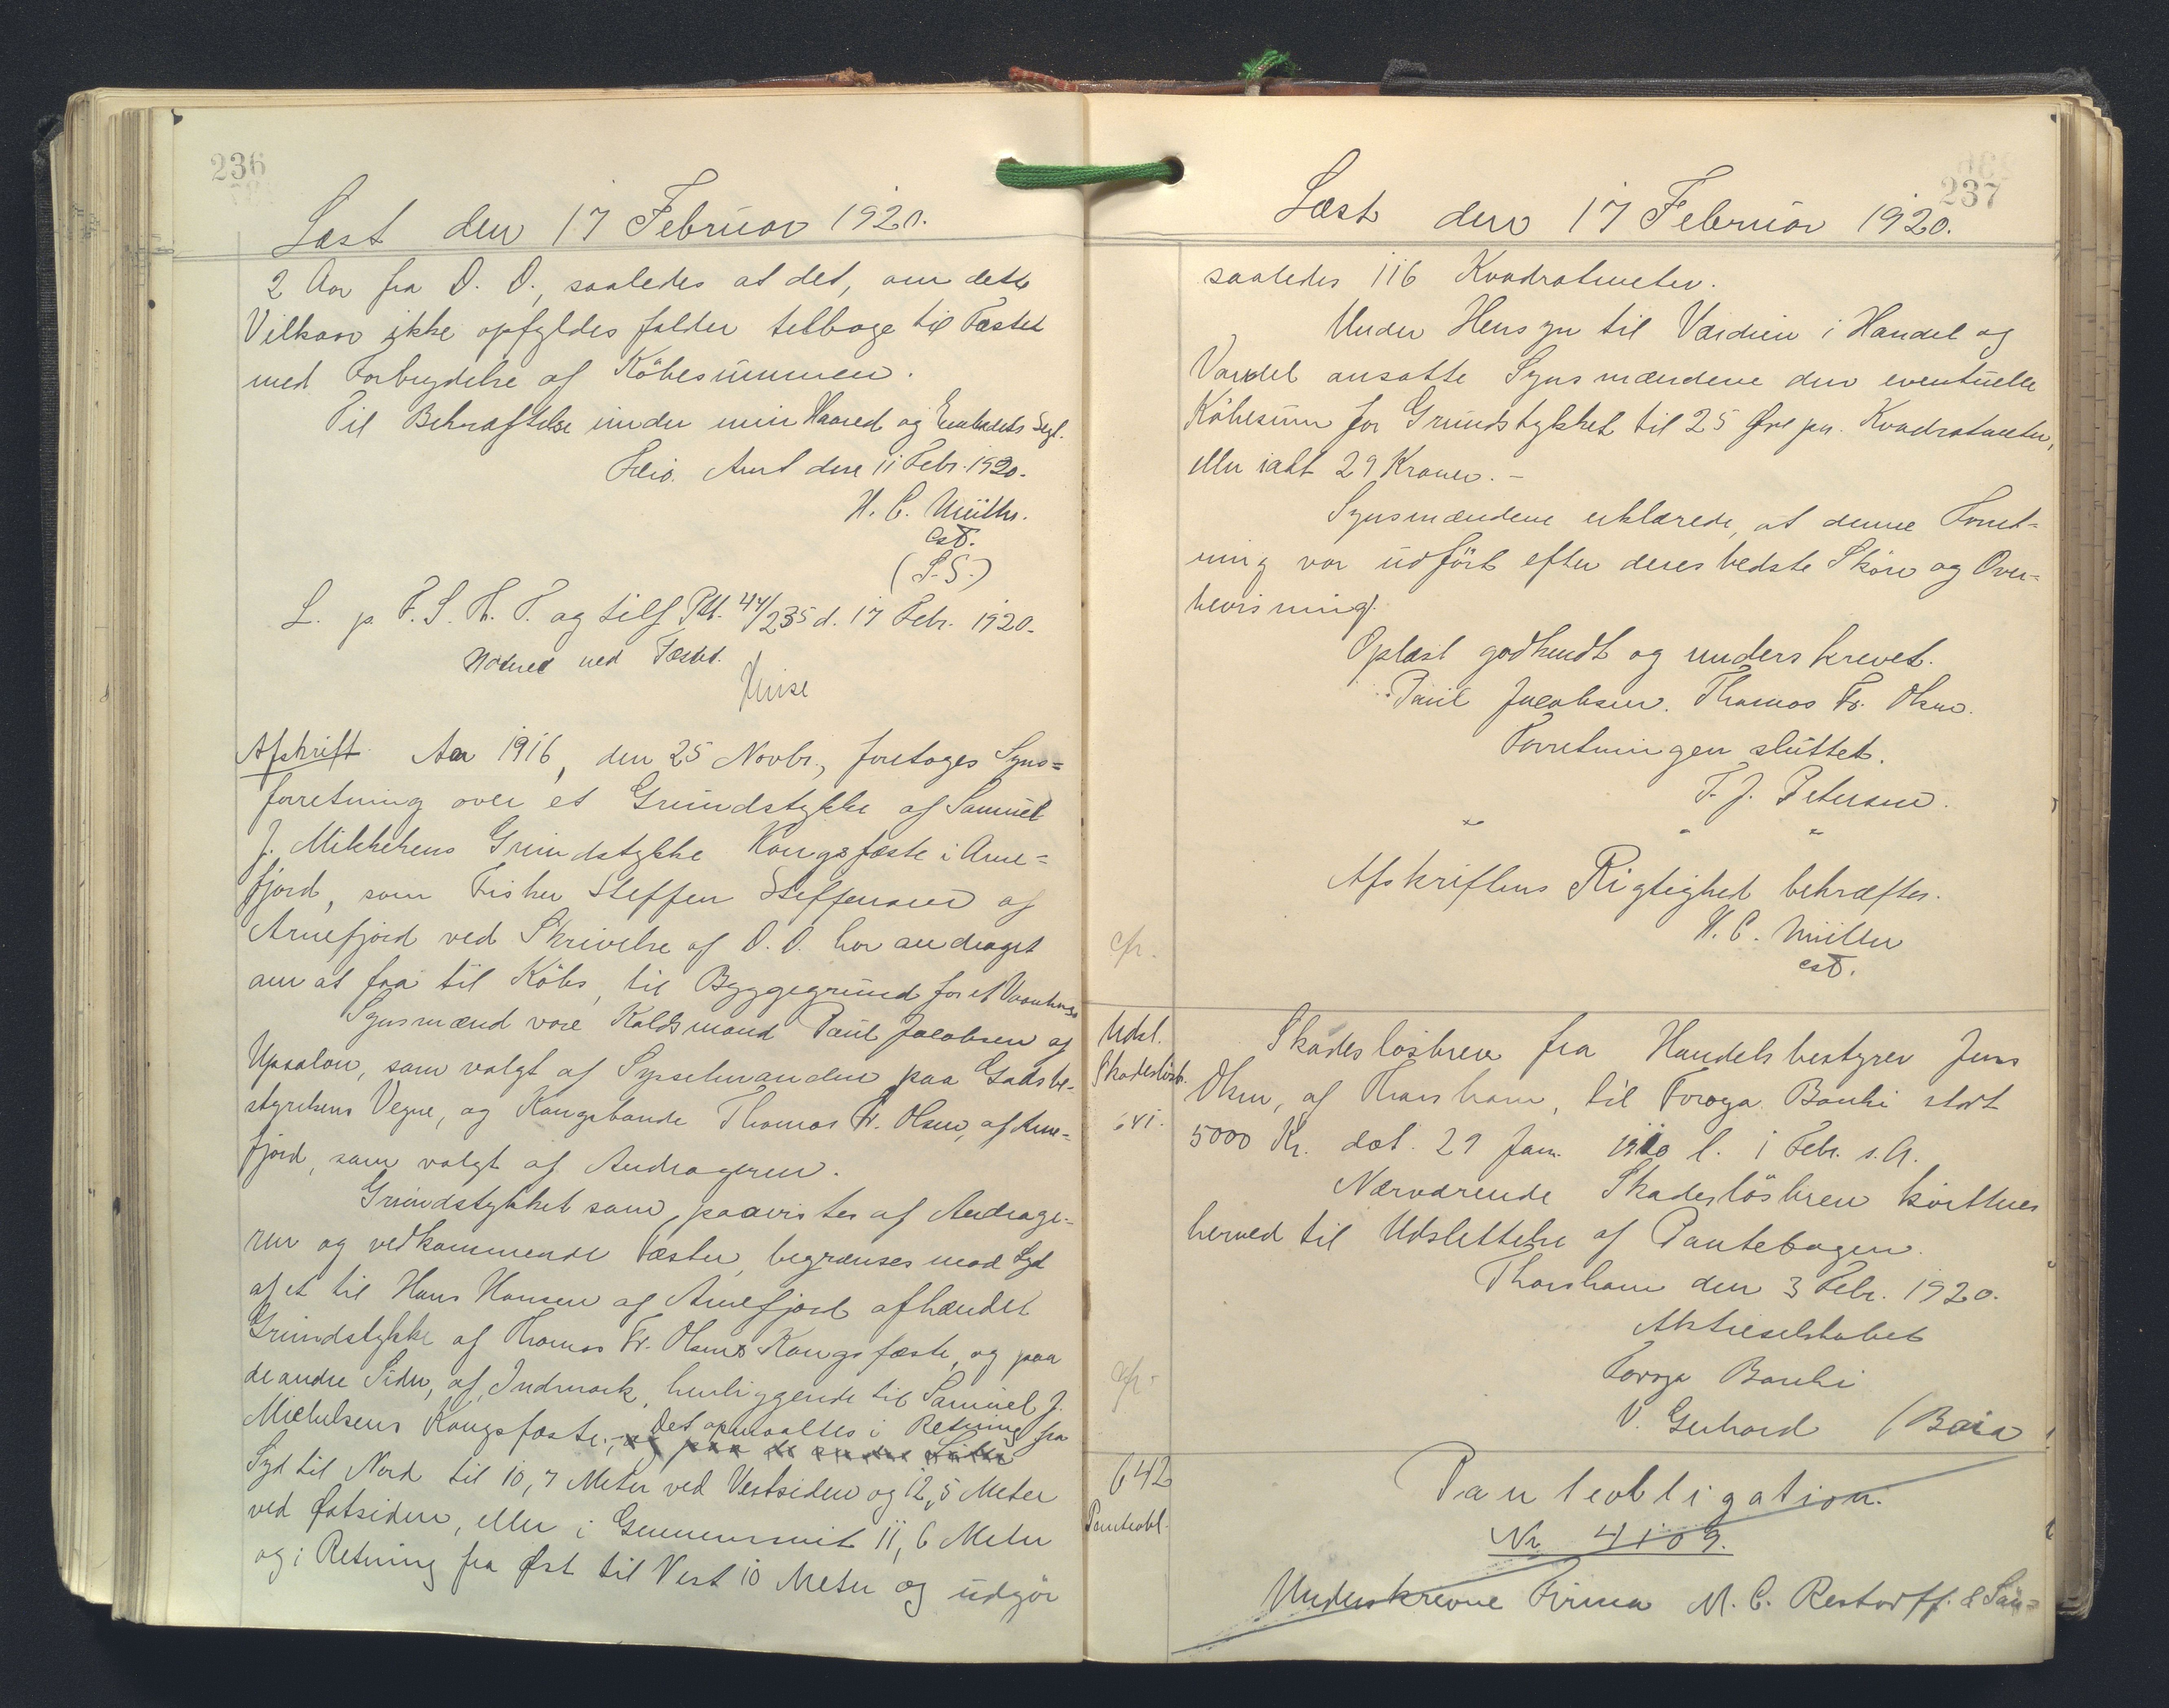 236
Læst den 17 Februar 1920.
2 Aar fra D. D., saaledes at det, om dette
Vilkaar ikke opfyldes falder tilbage til Fæstet
med Forbrydelse af Köbesummen.
Til Bekræftelse under min Haand og Embedets Segl.
Færö. Amt den 11 Febr. 1920.
H. C. Müller.
cst.
(L.S.)
L. p. F. S. Th. T. og tilf Ptt. 44/235 d. 17 Febr. 1920.
Noteret ved Fæstet.
Afskrift. Aar 1916, den 25 Novbr., foretoges Syns=
forretning over et Grundstykke af Samuel
J. Mikkelsens Grundstykke Kongsfæste i Arne=
fjord, som Fisker Steffen Steffensen af
Arnefjord ved Skrivelse af D. D. har andraget
om at faa til Köbs, til Byggegrund for et Vaanhus
Synsmænd vare Kaldsmand Paul Jacobsen af
Upsalon, som valgt af Sysselmanden paa Godsbe-
styrelsens Vegne, og Kongsbonde Thomas Fr. Olsen, af Arne=
fjord, som valgt af Andrageren.
Grundstykket som paavistes af Andrage=
ren og vedkommende Fæster, begrænses mod Syd
af et til Hans Hansen af Arnefjord afhændet
Grundstykke af Thomas Fr. Olsens Kongsfæste, og paa
de andre Sider, af Indmark, henliggende til Samuel J.
Michelsens Kongsfæste. Det opmaaltes i Retning fra
og paa de andre Sider
Syd til Nord til 10,7 Meter ved Vestsiden og 12,5 Meter
ved Østsiden, eller i Gennemsnit 11,6 Meter
og i Retning fra Øst til Vest 10 Meter og udgör
237
Læst den 17 Februar 1920.
saaledes 116 Kvadratmeter.
Under Hensyn til Værdien i Handel og
Vandel ansatte Synsmændene den eventuelle
Köbesum for Grundstykket til 25 Øre pr. Kvadratmeter,
eller ialt 29 Kroner. -
Synsmændene erklærede, at denne Forret=
ning var udfört efter deres bedste Skön og Over=
bevisning.
Oplæst godkendt og underskrevet.
Paul Jacobsen. Thomas Fr. Olsen.
Forretningen sluttet.
T. J. Petersen.
" " "
Afskriftens Rigtighed bekræftes.
H. C. Müller
cst.
cfr.
Udsl.
Skadeslösb.
641.
Skadeslösbrev fra Handelsbestyrer Jens
Olsen, af Thorshavn, til Föroya Banki stort
5000 Kr. dat. 29 Jan. 1910 l. 1 Febr. s. A.
Nærværende Skadeslösbrev kvitteres
herved til Udslettelse af Pantebogen.
Thorshavn den 3 Febr. 1920.
Aktieselskabet
Föroya Banki
V. Gerhard (Baia
cfr.
642
Panteobl.
Panteobligation.
Nr 4109.
Underskrevne Firma M. C. Restorff & Sön=